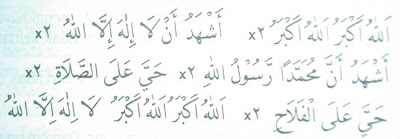 اَللهُ أَكْبَرُ اَللهُ أَكْبَرُ x٢ أَشْهَدُ أَنْ لَا إِلٰهَ إِلَّا اللهُ x٢
أَشْهَدُ أَنَّ مُحَمَّدًا رَّسُوْلُ اللهِ x٢ حَيَّ عَلَى الصَّلَاةِ x٢
حَيَّ عَلَى الْفَلَاحِ x٢ اَللهُ أَكْبَرُ اَللهُ أَكْبَرُ لَا إِلٰهَ إِلَّا اللهُ